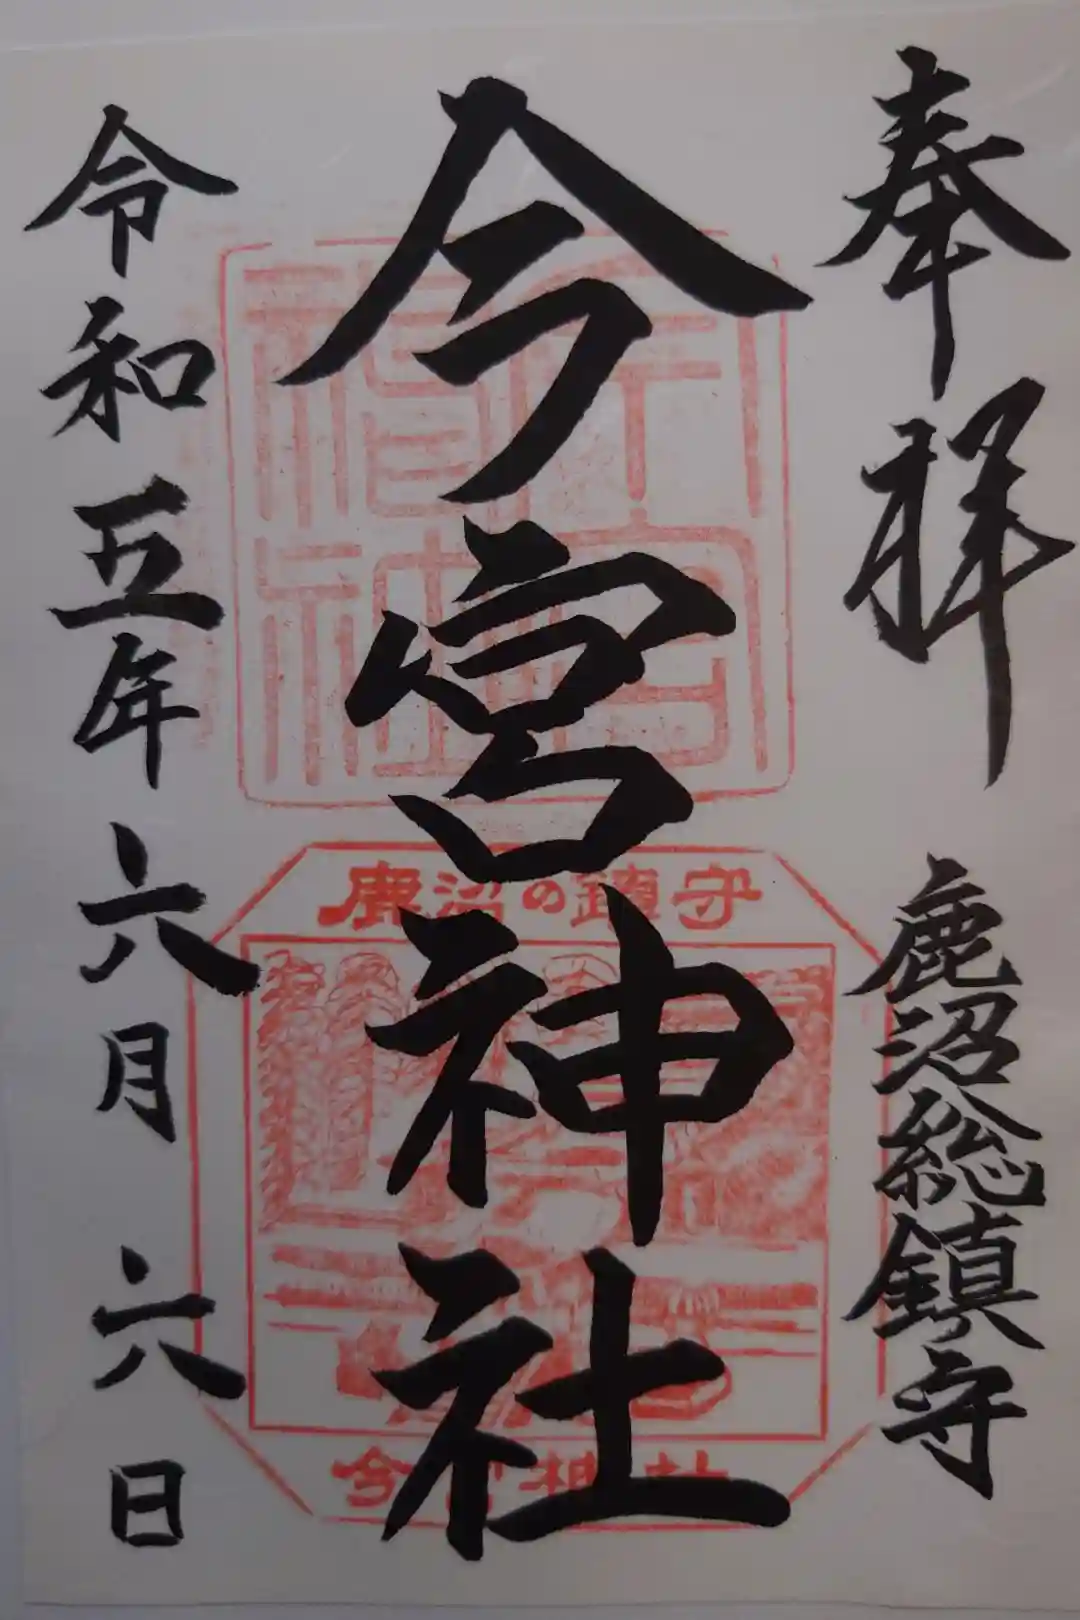 奉拝
鹿沼総鎮守
今宮神社
令和五年六月六日
鹿沼の鎮守
今宮神社